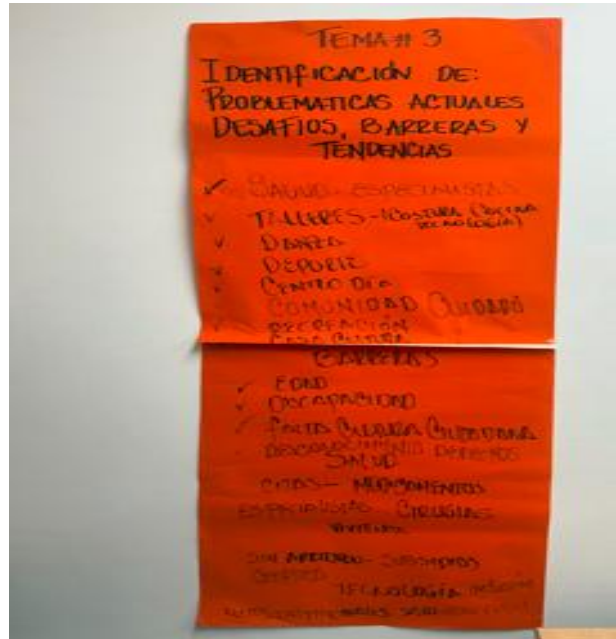 TEMA # 3
IDENTIFICACIÓN DE:
PROBLEMATICAS ACTUALES
DESAFÍOS, BARRERAS Y
TENDENCIAS
SALUD - ESPECIALISTAS
TALLERES - (COSTURA COCINA
TECNOLOGÍA)
DANZA
DEPORTE
CENTRO DÍA
COMUNIDAD CUIDADO
RECREACIÓN
CASA CULTURA
BARRERAS
EDAD
DISCAPACIDAD
FALTA CULTURA CIUDADANA
DESCONOCIMIENTO DERECHOS
SALUD
CITAS - MEDICAMENTOS
CIRUGIAS
SUBSIDIOS
TECNOLOGÍA